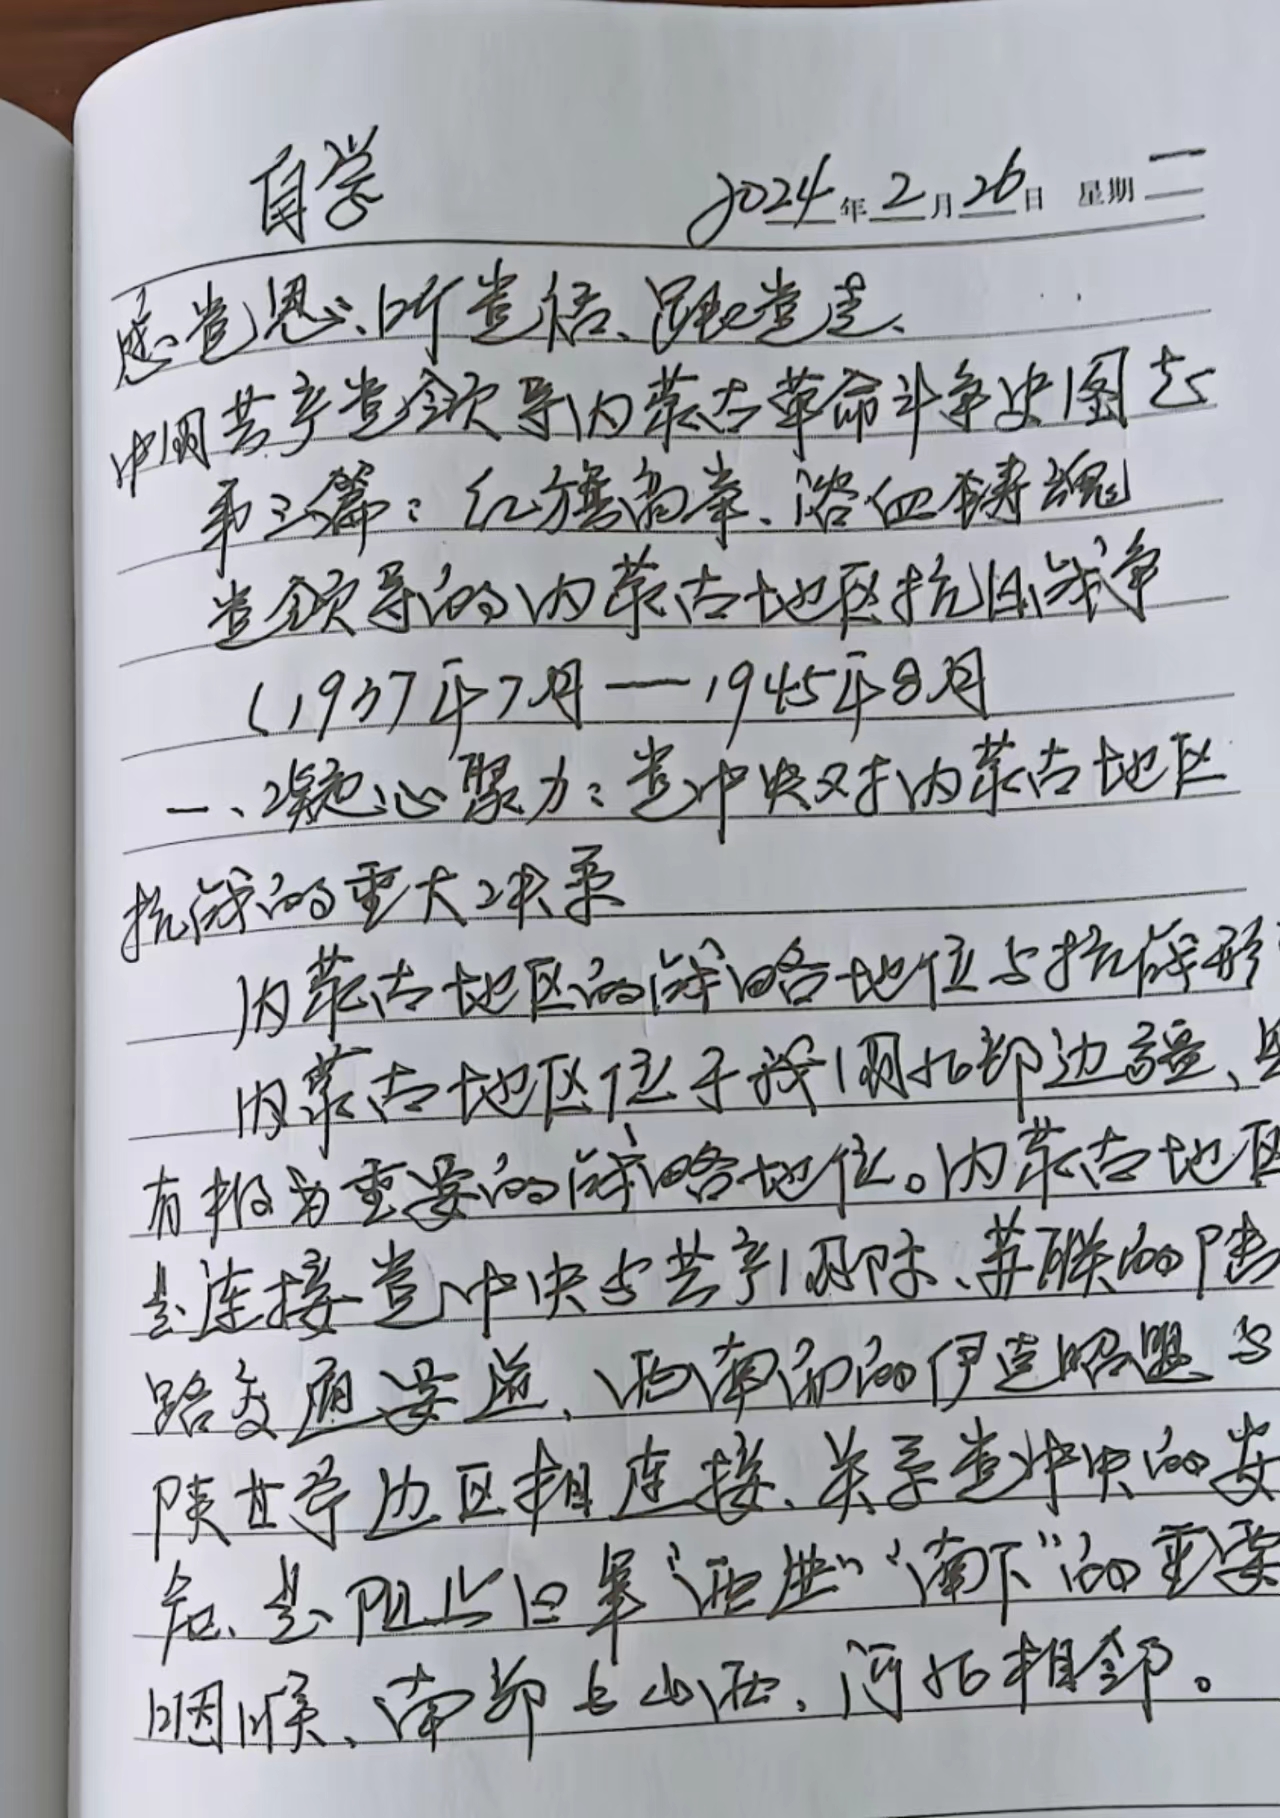 自学
2024年2月26日 星期一
感党恩、听党话、跟党走、
中国共产党领导内蒙古革命斗争史图志
第三篇：红旗高举、浴血铸魂
党领导的内蒙古地区抗日战争
(1937年7月——1945年8月
一、凝心聚力：党中央对内蒙古地区
抗战的重大决策
内蒙古地区的战略地位与抗战形
内蒙古地区位于我国北部边疆、
有极为重要的战略地位。内蒙古地区
是连接党中央与共产国际、苏联的陆
路交通要道、西南部的伊克昭盟与
陕甘宁边区相连接、关系党中央的安
危、是阻止日军“西进”“南下”的重要
咽喉、南部与山西、河北相邻。